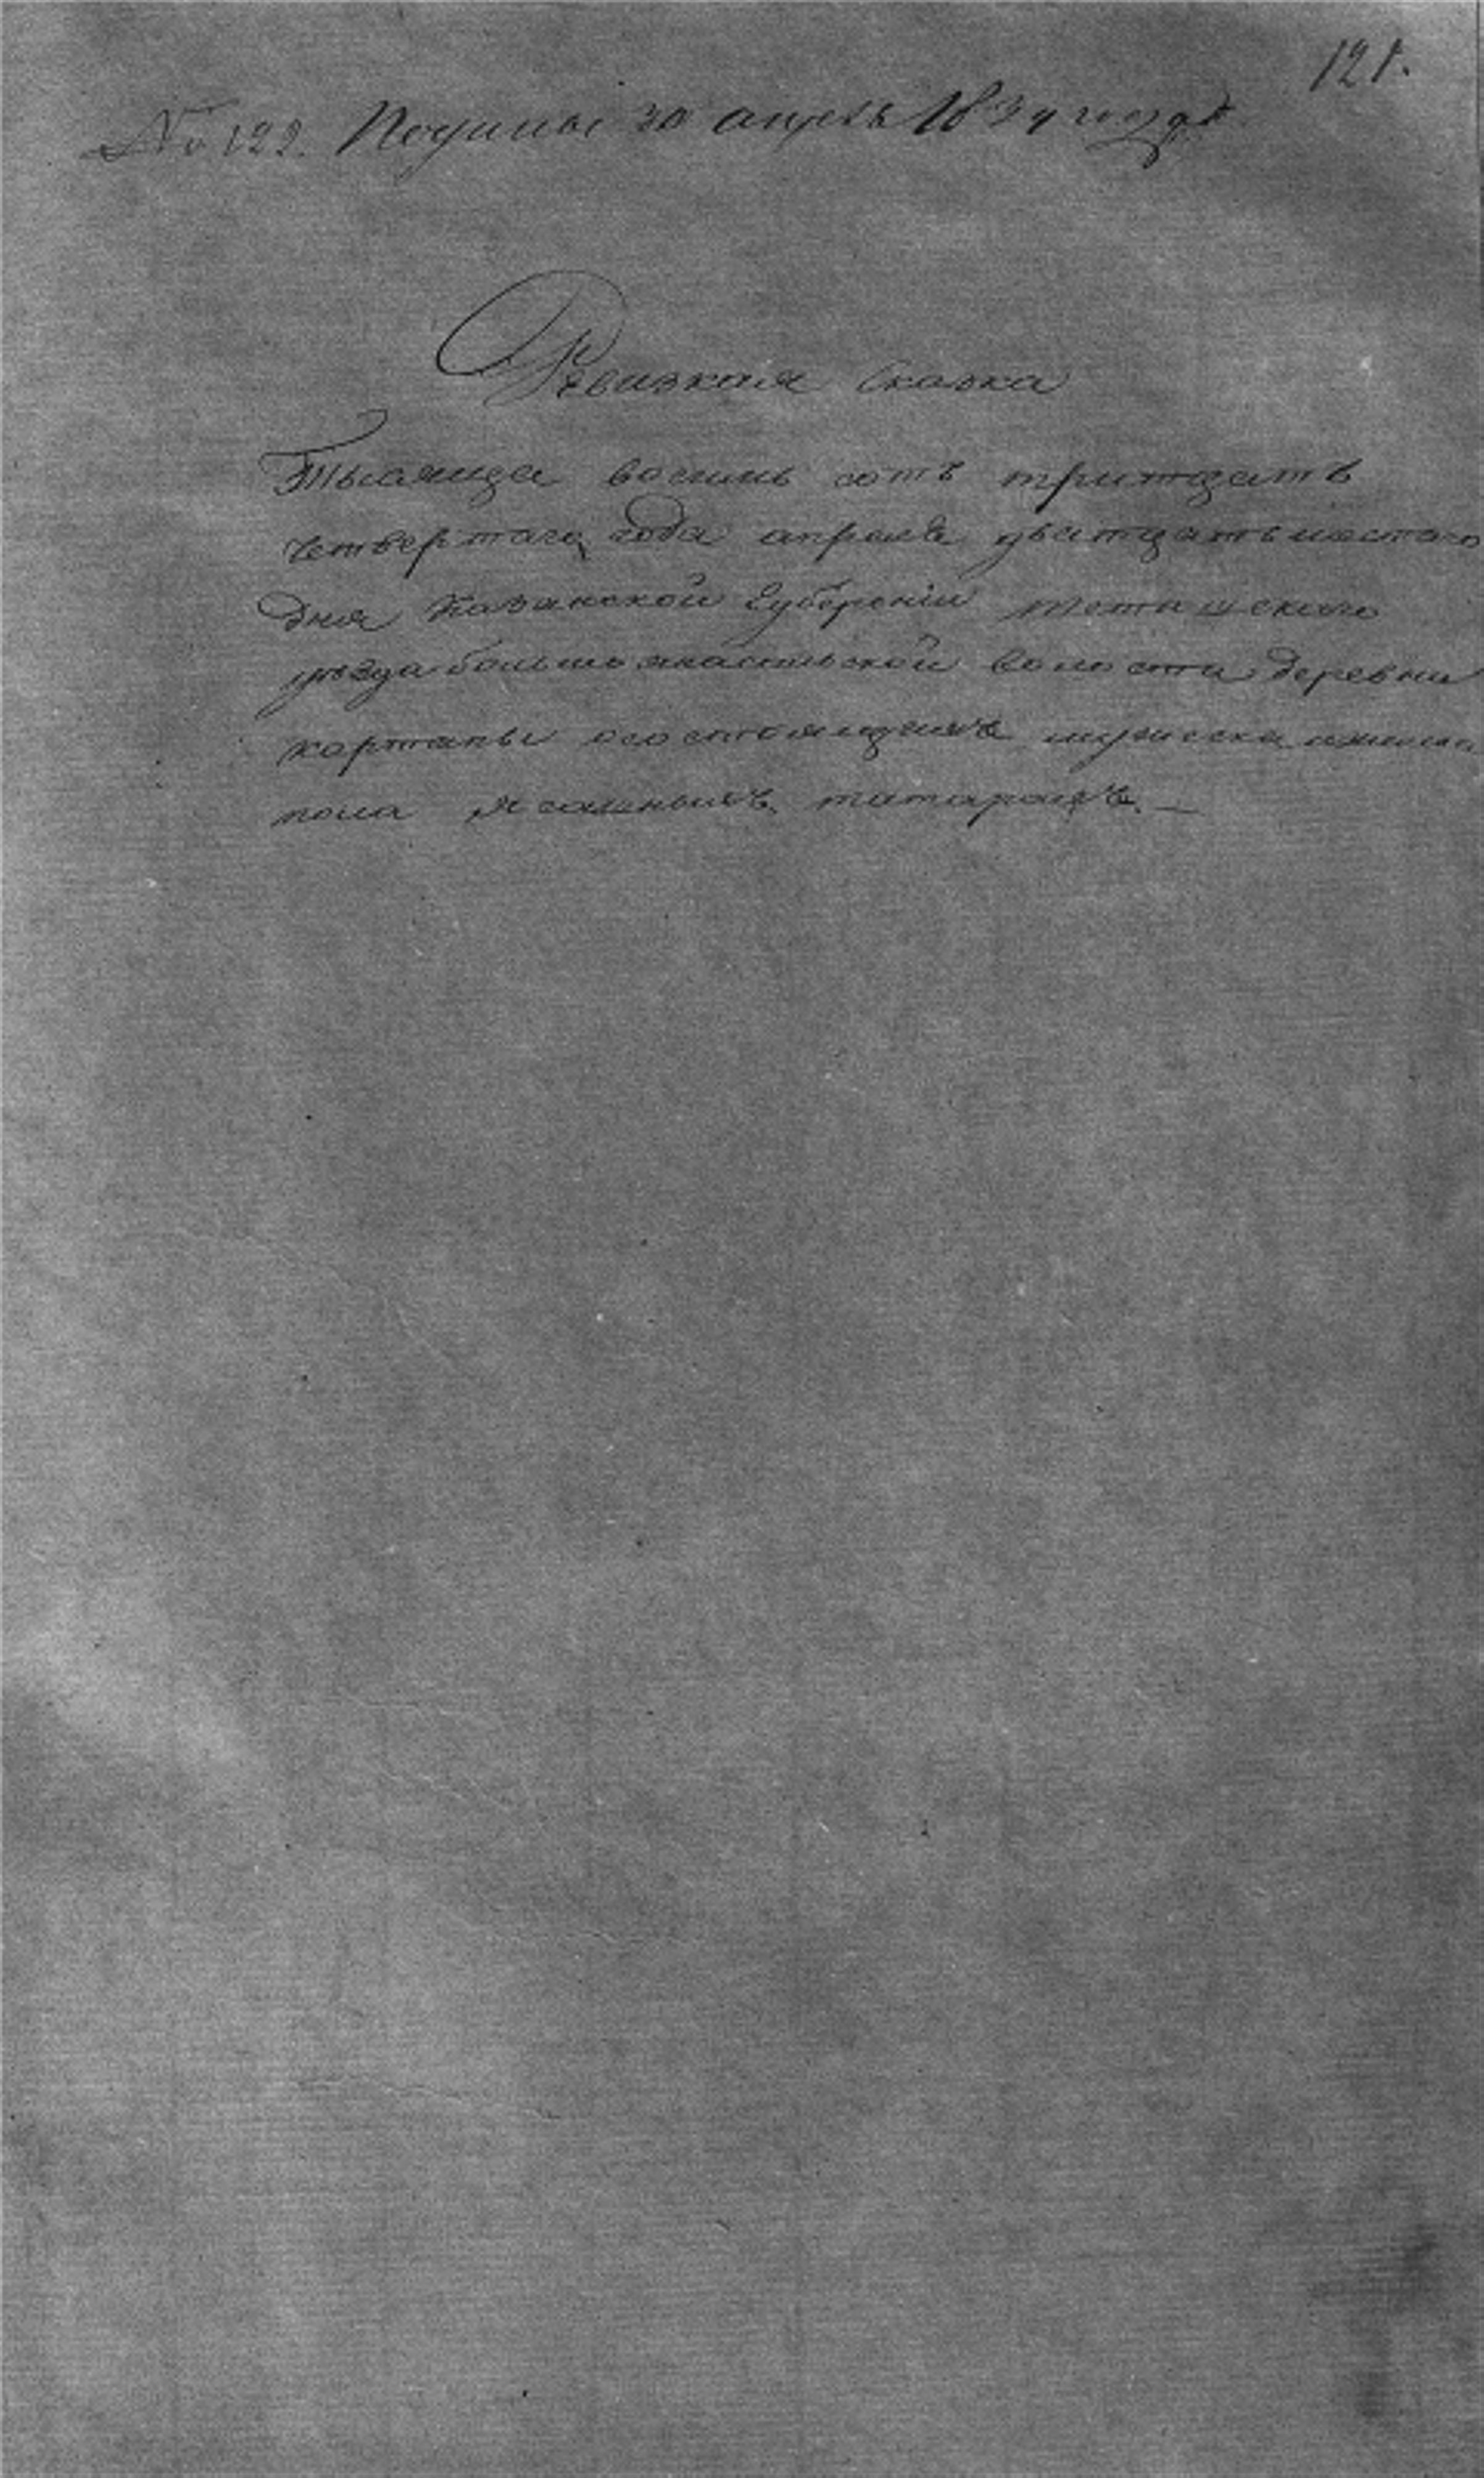 121.
№ 122. Получена 30 апреля 1834 года
Ревизкая Сказка
Тысяища восимь сотъ тритцать
четвертаго года апреля дватцать шестаго
дня Казанской Губернiи тетюшскаго
уезда большо атрясьской волости деревни
картапы осостоящихъ мужеска
пола ясашныхъ татарахъ. —